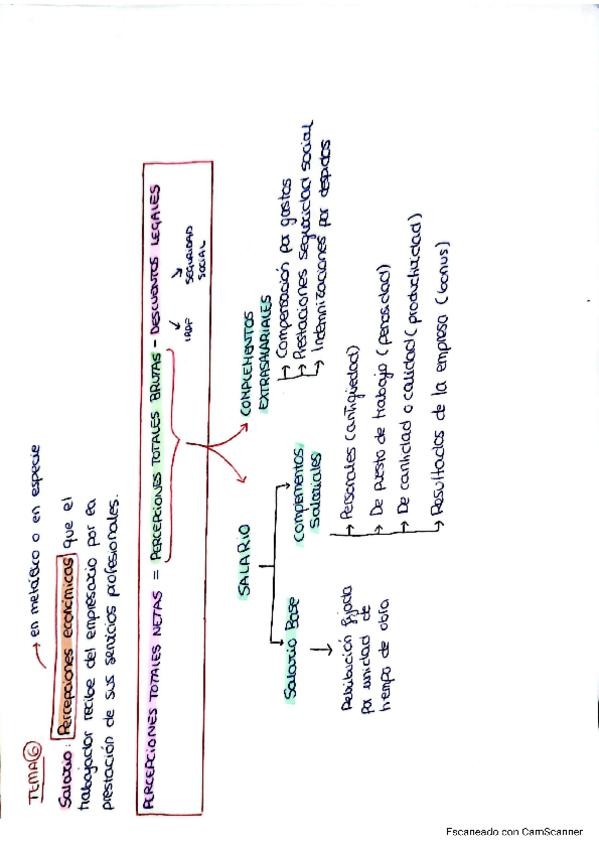 TEMA 6
→ en metálico o en especie
Salario: Percepciones económicas que el
trabajador recibe del empresario por la
prestación de sus servicios profesionales.
PERCEPCIONES TOTALES NETAS = PERCEPCIONES TOTALES BRUTAS - DESCUENTOS LEGALES
IRPF
SEGURIDAD
SOCIAL
SALARIO
COMPLEMENTOS
EXTRASALARIALES
→ Compensación por gastos
→ Prestaciones seguridad social
→ Indemnizaciones por despidos
Salario Base
Complementos
Salariales
Retribución fijada
por unidad de
tiempo de obra
→ Personales (antigüedad)
→ De puesto de trabajo (penosidad)
→ De cantidad o calidad (productividad)
→ Resultados de la empresa (bonus)
Escaneado con CamScanner